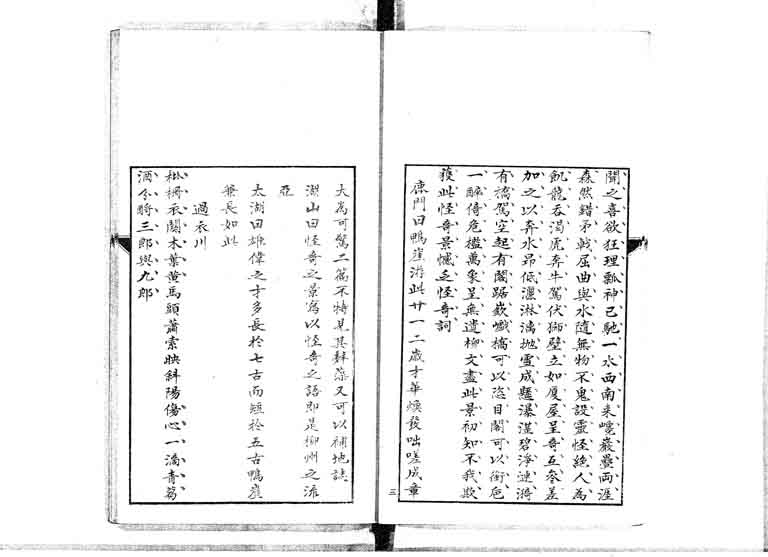 聞之喜欲狂理瓢神已馳一水西南来噬巖疊両涯
森然錯矛戟屈曲與水隨無物不鬼設靈怪絶人為
飢龍吞渇虎奔牛駕伏獅壁立如厦屋呈奇互參差
加之以奔水昂低濕淋漓拋雪成飛瀑漾碧淨漣漪
有橋駕空起有閣踞嶔巇橋可以恣目閣可以銜卮
一醉倚危檻萬象呈無遺柳文盡此景初知不我欺
獲此怪奇景憾乏怪奇詞
鹿門曰鴨崖游此廿一二歳才華煥發咄嗟成章
三
大為可驚二篇不特見其辭藻又可以補地誌
湖山曰怪奇之景寫以怪奇之語即是柳州之流
亞
太湖曰雄偉之才多長於七古而短於五古鴨崖
兼長如此
過衣川
楸柵衣關木葉黄馬頭蕭索映斜陽傷心一潘青芻
酒今酹三郎與九郎